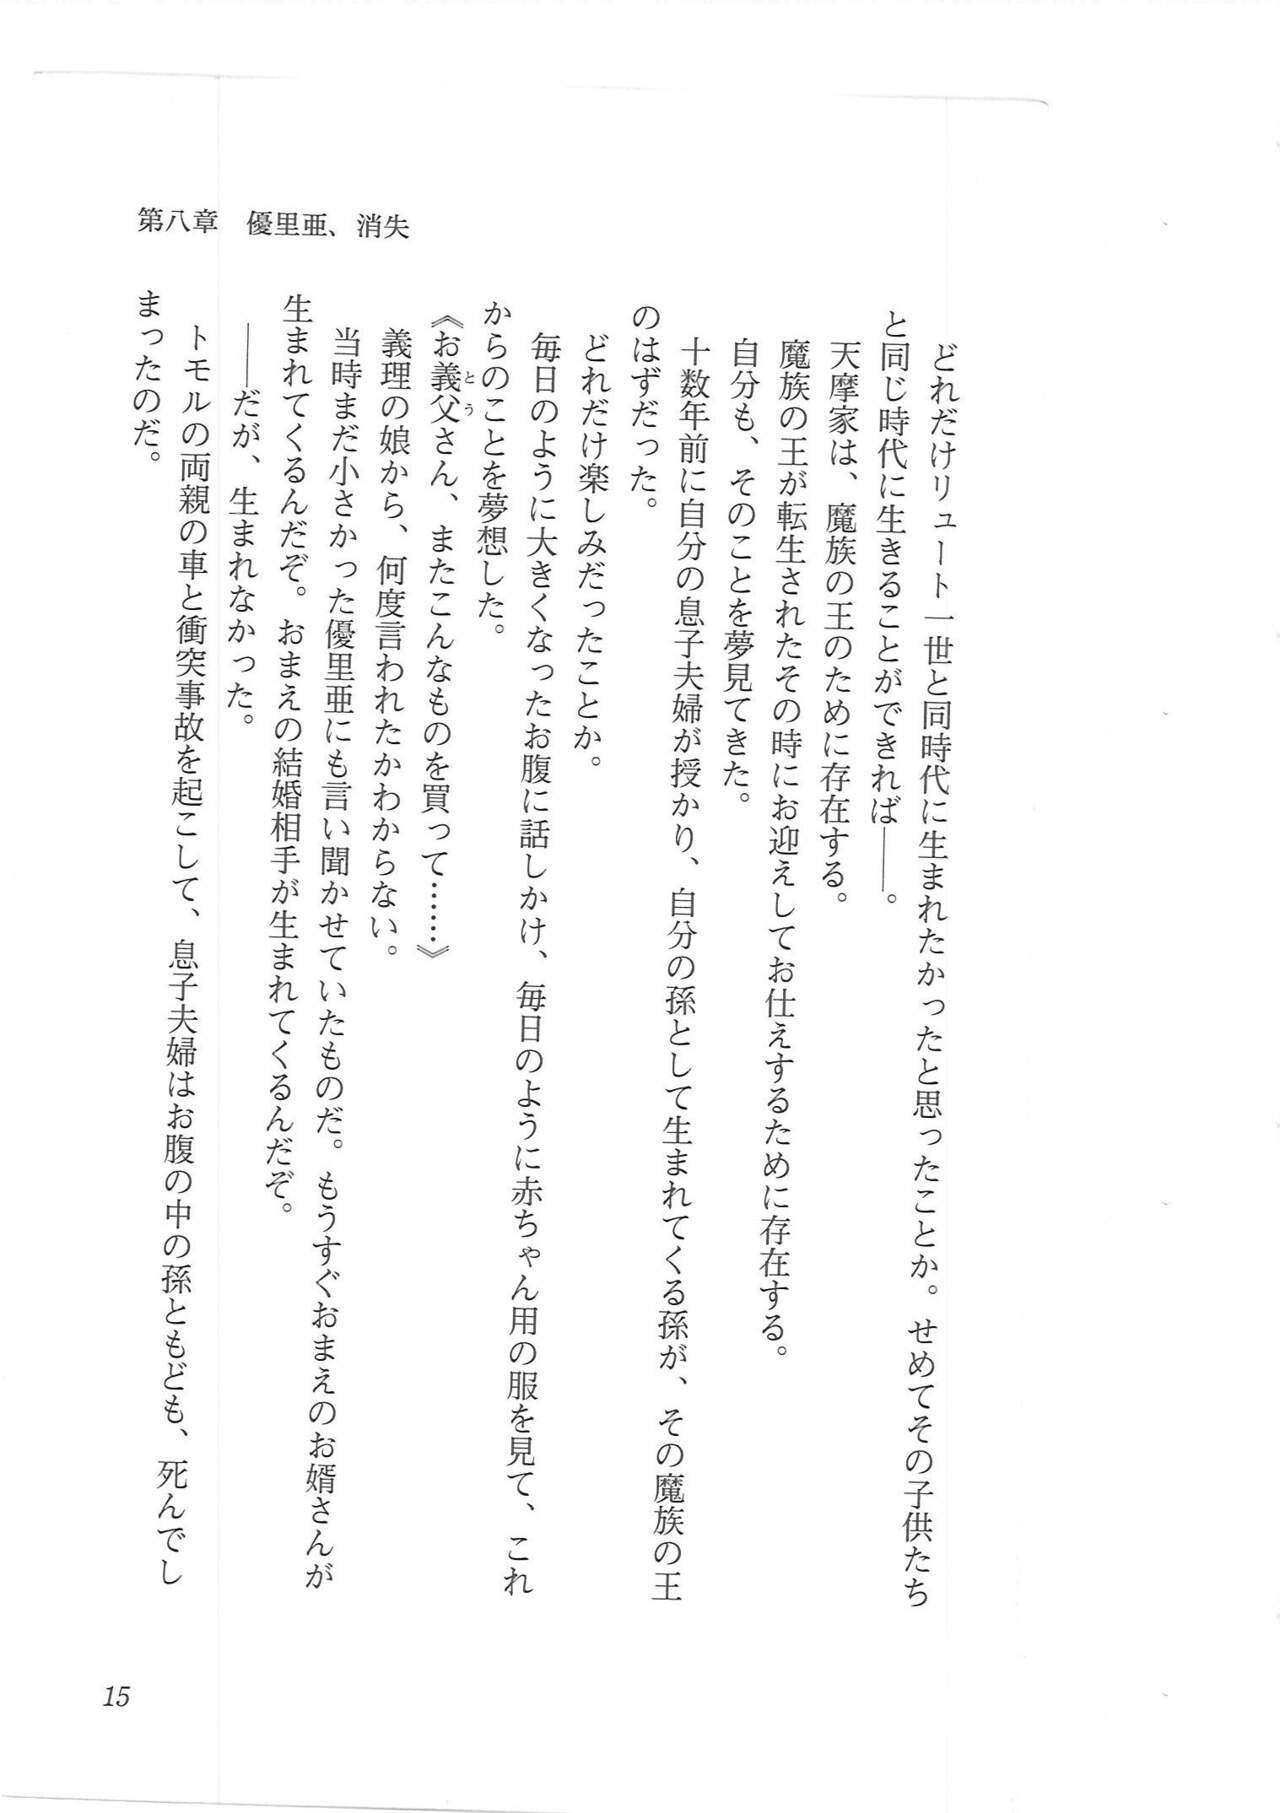 第八章　優里亜、消失
　どれだけリュート一世と同時代に生まれたかったと思ったことか。せめてその子供たち
と同じ時代に生きることができれば――。
　天摩家は、魔族の王のために存在する。
　魔族の王が転生されたその時にお迎えしてお仕えするために存在する。
　自分も、そのことを夢見てきた。
　十数年前に自分の息子夫婦が授かり、自分の孫として生まれてくる孫が、その魔族の王
のはずだった。
　どれだけ楽しみだったことか。
　毎日のように大きくなったお腹に話しかけ、毎日のように赤ちゃん用の服を見て、これ
からのことを夢想した。
《お義父さん、またこんなものを買って……》
とう
　義理の娘から、何度言われたかわからない。
　当時まだ小さかった優里亜にも言い聞かせていたものだ。もうすぐおまえのお婿さんが
生まれてくるんだぞ。おまえの結婚相手が生まれてくるんだぞ。
　――だが、生まれなかった。
　トモルの両親の車と衝突事故を起こして、息子夫婦はお腹の中の孫ともども、死んでし
まったのだ。
15